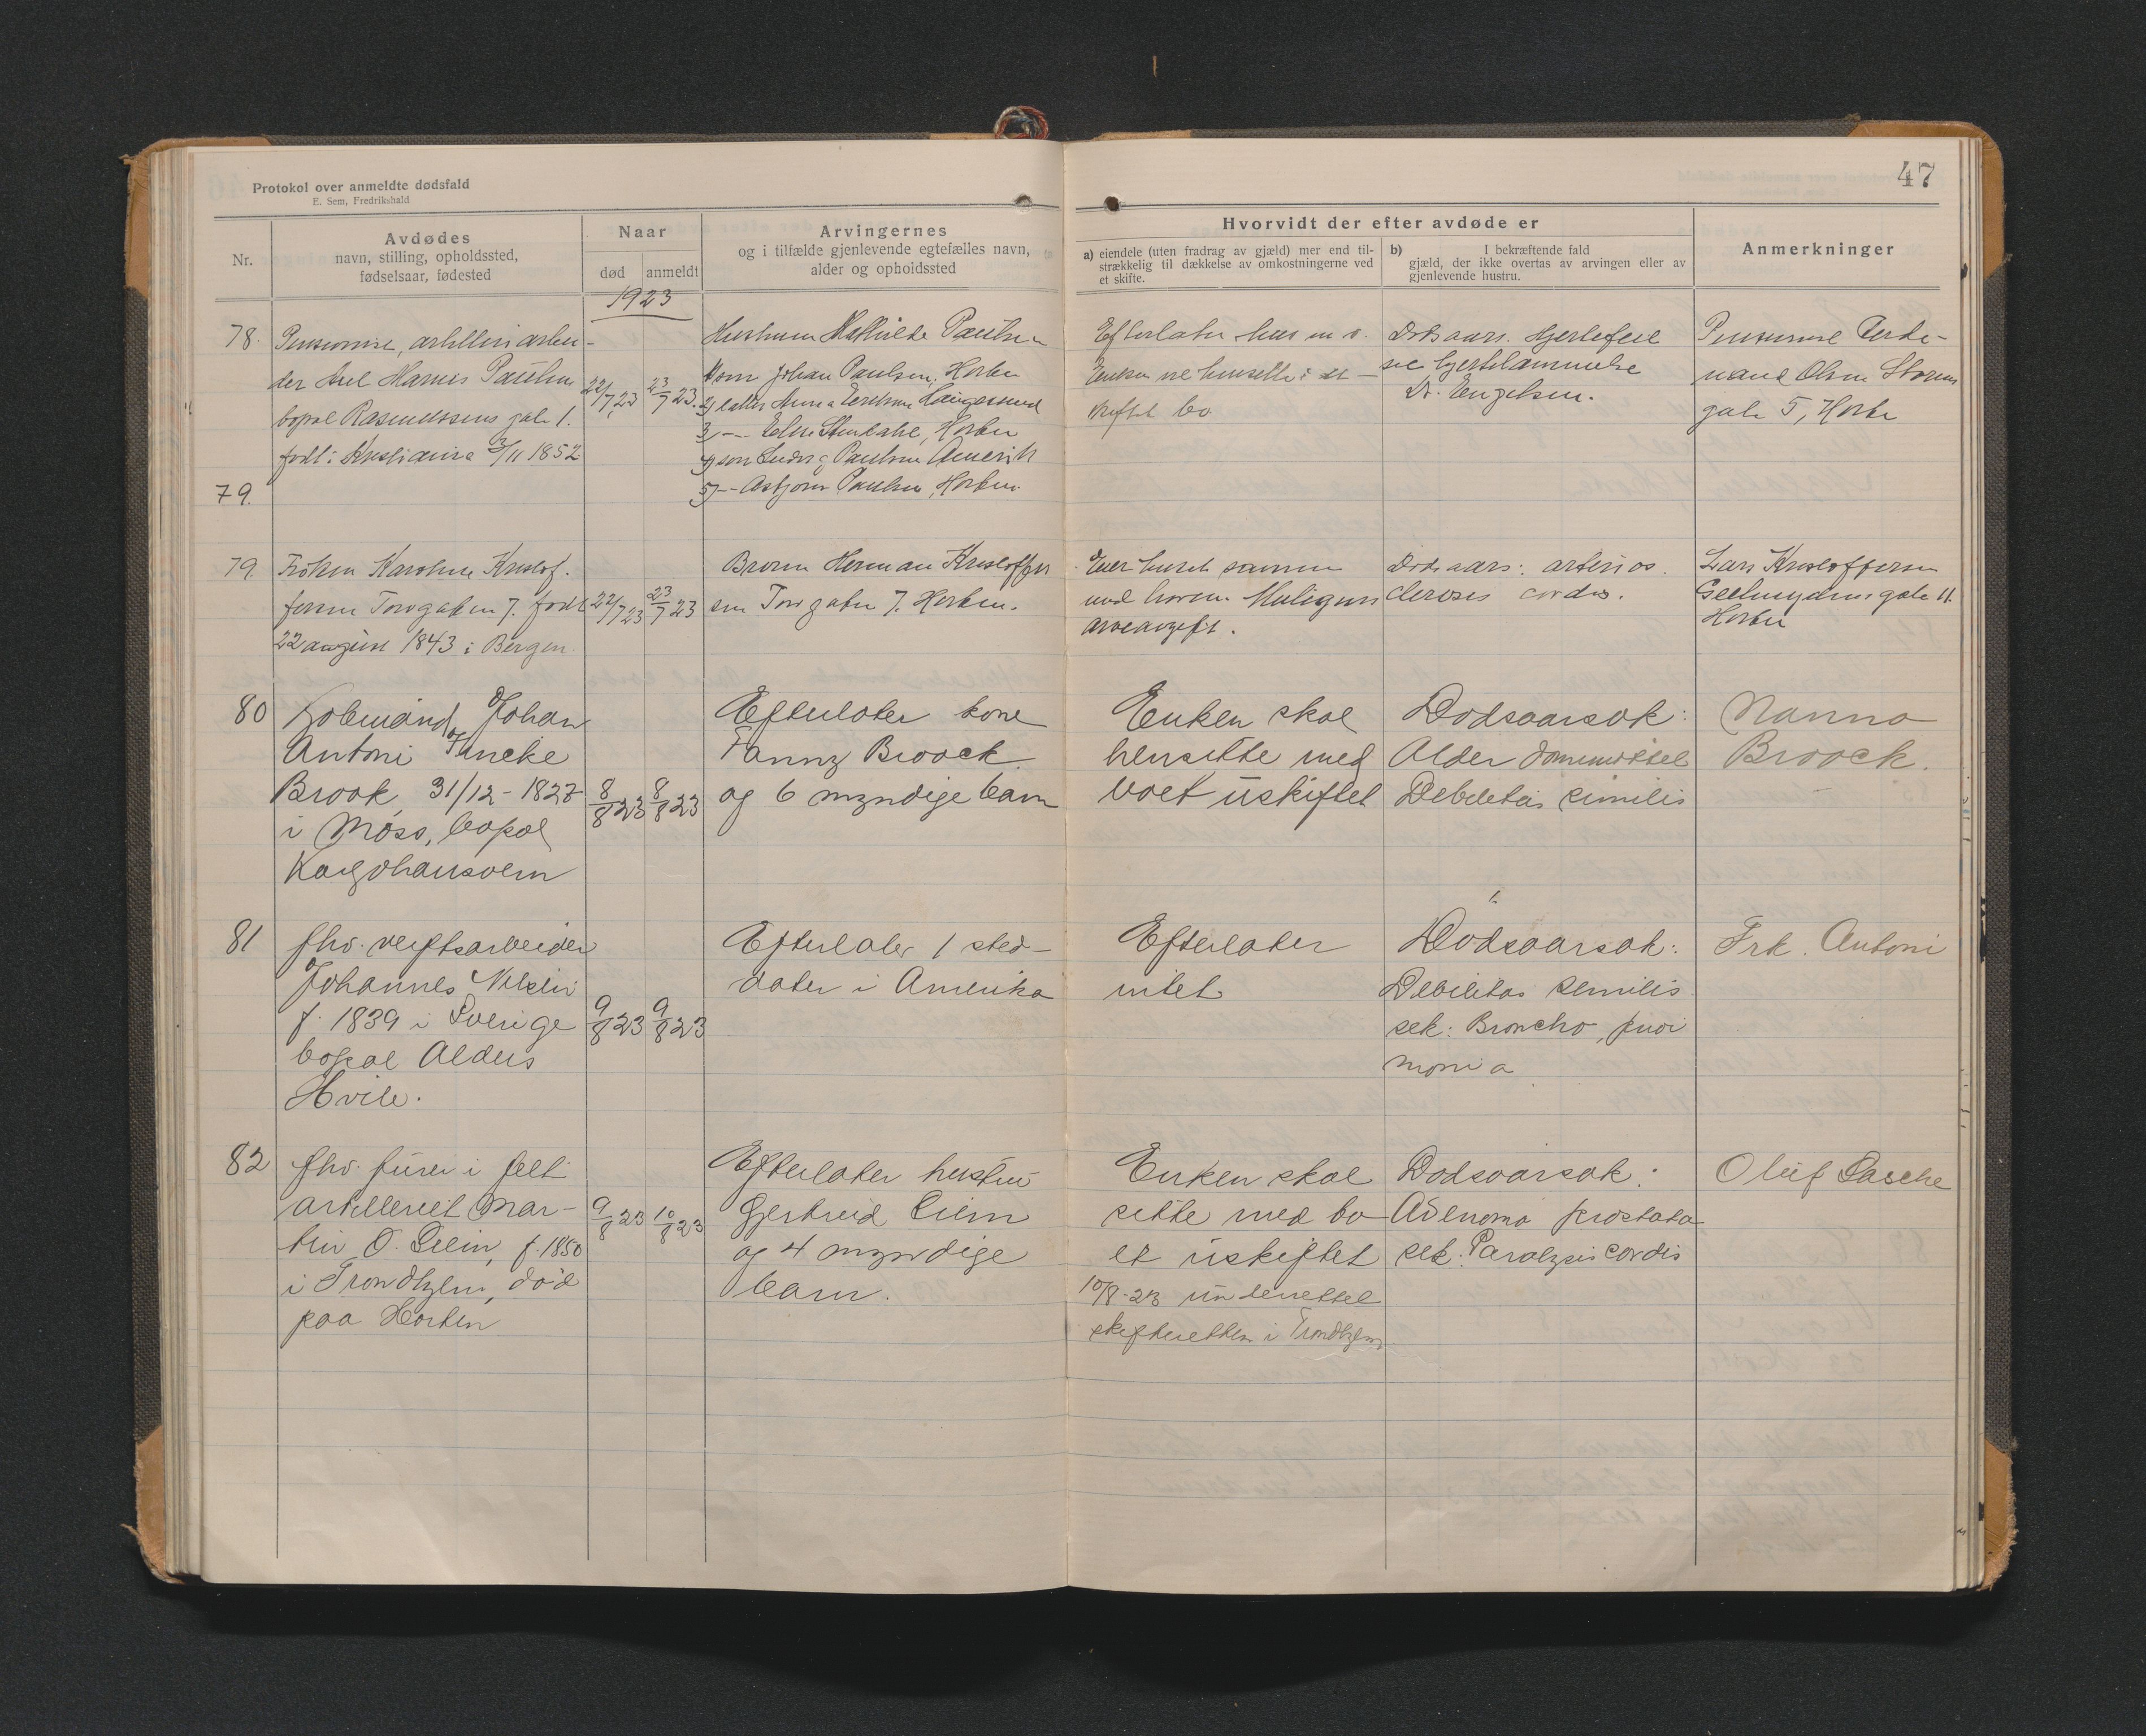 47
Protokol over anmeldte dødsfald
E. Sem, Fredrikshald
Nr.
Avdødes
navn, stilling, opholdssted,
fødselsaar, fødested
Naar
død
anmeldt
Arvingernes
og i tilfælde gjenlevende egtefælles navn,
alder og opholdssted
Hvorvidt der efter avdøde er
a) eiendele (uten fradrag av gjæld) mer end til-
strækkelig til dækkelse av omkostningerne ved
et skifte.
b) I bekræftende fald
gjæld, der ikke overtas av arvingen eller av
gjenlevende hustru.
Anmerkninger
1923
78.
der Axel Marius Paulsen
bopæl Rasmussens gate 1.
født i Kristiania 3/11 1852
22/7 23
23/7 23.
Hustruen Mathilde Paulsen
1) søn Johan Paulsen, Horten
3) -- Horten
4) søn Ludvig Paulsen Amerik
5) -- Asbjørn Paulsen, Horten.
Efterlater hus m v.
skiftet bo
Dødsaars. Hjertefeil
sec hjertelammelse
Dr. Engelsen.
Pensioneret Ferdi-
nand Olsen Storms
gate 5, Horten
79.
79.
Frøken Karoline Kristof-
fersen Torvgaten 7. født
22 august 1843 i Bergen.
22/7 23
23/7 23
Broren Herman Kristoffer
sen Torvgaten 7. Horten.
Eier huset sammen
med broren. Muligens
arveavgift.
Dødsaars: arterios.
clerosis cordis.
Lars Kristoffersen
gate 11.
Horten
80
Johan
Antoni Fincke
Broock 31/12 - 1827
i Moss, bopæl
Karljohansvern
8/8 23
8/8 23
Efterlater kone
Fanny Broock
og 6 myndige barn
Enken skal
hensitte med
boet uskiftet
Dødsaarsak:
Alder
Debilitas similis
Nanna
Broock.
81
fhv. verftsarbeider
Johannes Nilsen
f. 1839 i Sverige
bopæl Alders
Hvile.
9/8 23
9/8 23
Efterlater 1 sted-
dater i Amerika
Efterlater
intet
Dødsaarsak:
Debilitas semilis
sek: Broncho, pnoi
monia
Frk. Antoni
82
fhv. furer i felt
artilleriet Mar-
tin O. Liein, f. 1850
i Trondhjem, død
paa Horten
9/8 23
10/8 23
Efterlater hustru
Gjertrud Liein
og 4 myndige
barn.
Enken skal
sitte med bo
et uskiftet
10/8-23 underrettet
skifteretten i Trondhjem
Dødsaarsak:
Adenoma prostata
sek: Paralysis cordis
Oluf Sasche